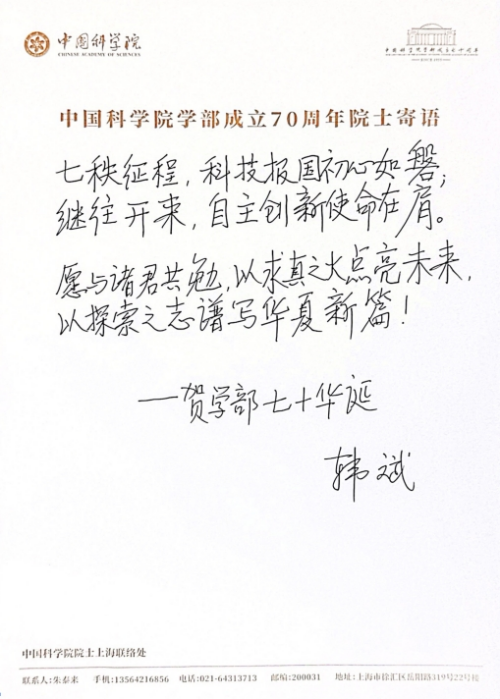 中国科学院
CHINESE ACADEMY OF SCIENCES
中国科学院学部成立70周年院士寄语
七秩征程，科技报国初心如磐；
继往开来，自主创新使命在肩。
愿与诸君共勉，以求真之火点亮未来，
以探索之志谱写华夏新篇！
—贺学部七十华诞
韩斌
中国科学院院士上海联络处
联系人:朱泰来 手机:13564216856 电话:021-64313713 邮编:200031 地址:上海市徐汇区岳阳路319号22号楼